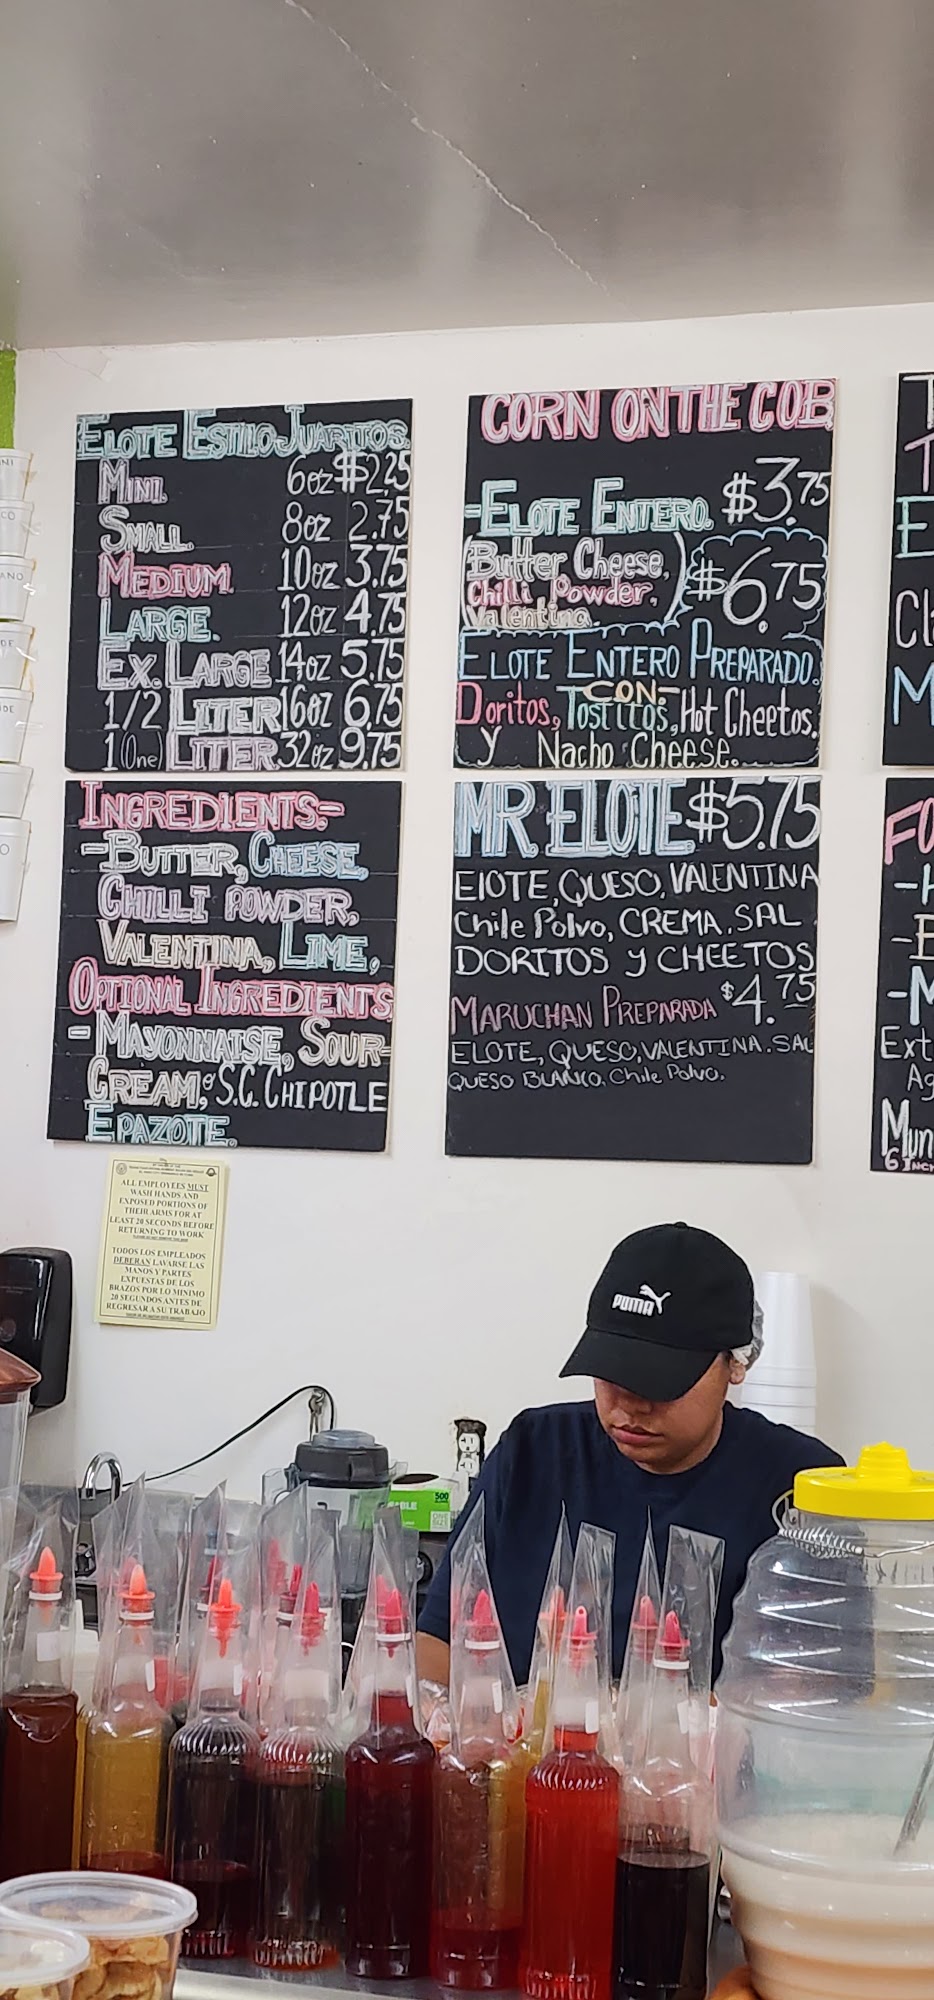 ELOTE ESTILO JUARITOS.
MINI. 6oz $2.25
SMALL. 8oz 2.75
MEDIUM. 10oz 3.75
LARGE. 12oz 4.75
EX. LARGE 14oz 5.75
1/2 LITER 16oz 6.75
1 (One) LITER 32oz 9.75
INGREDIENTS:-
-BUTTER, CHEESE,
CHILLI POWDER,
VALENTINA, LIME,
OPTIONAL INGREDIENTS
-MAYONNAISE, SOUR-
CREAM, S.C. CHIPOTLE
EPAZOTE.
CORN ON THE COB
-ELOTE ENTERO. $3.75
(Butter Cheese,
Chilli Powder,
Valentina.)
$6.75
ELOTE ENTERO PREPARADO.
CON-
Doritos, Tostitos, Hot Cheetos.
y Nacho Cheese.
MR. ELOTE $5.75
ElOTE, QUESO, VALENTINA
Chile Polvo, CREMA. SAL
DORITOS y CHEETOS
MARUCHAN PREPARADA $4.75
ELOTE, QUESO, VALENTINA. SAL
QUESO BLANCO. Chile Polvo.
Cl
M
FO
Ext
Ag
Mun
6 INC
ALL EMPLOYEES MUST
WASH HANDS AND
EXPOSED PORTIONS OF
THEIR ARMS FOR AT
LEAST 20 SECONDS BEFORE
RETURNING TO WORK
TODOS LOS EMPLEADOS
DEBERAN LAVARSE LAS
MANOS Y PARTES
EXPUESTAS DE LOS
BRAZOS POR LO MINIMO
20 SEGUNDOS ANTES DE
REGRESAR A SU TRABAJO
PUMA
500
ONE
SIZE